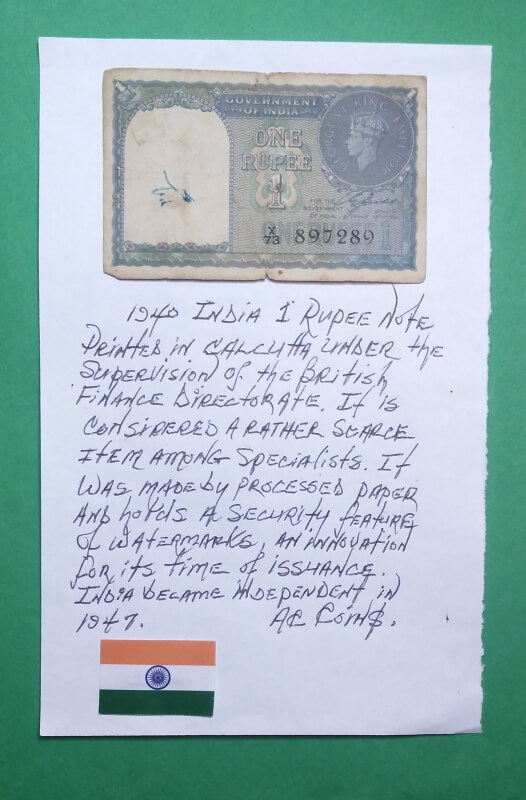 GOVERNMENT
OF INDIA
ONE
RUPEE
1
GEORGE VI KING EMPEROR
FOR THE
GOVERNMENT
OF INDIA
X/73 897289
1940 INDIA 1 RUPEE NOTE
PRINTED IN CALCUTTA UNDER the
SUPERVISION of the BRITISH
FINANCE DIRECTORATE. IT is
CONSIDERED A RATHER SCARCE
ITEM AMONG SPECIALISTS. IT
WAS MADE by PROCESSED PAPER
AND holds A SECURITY FEATURE
of WATERMARKS, AN INNOVATION
for its TIME of ISSUANCE.
INDIA BECAME INDEPENDENT in
1947. AC COINS.